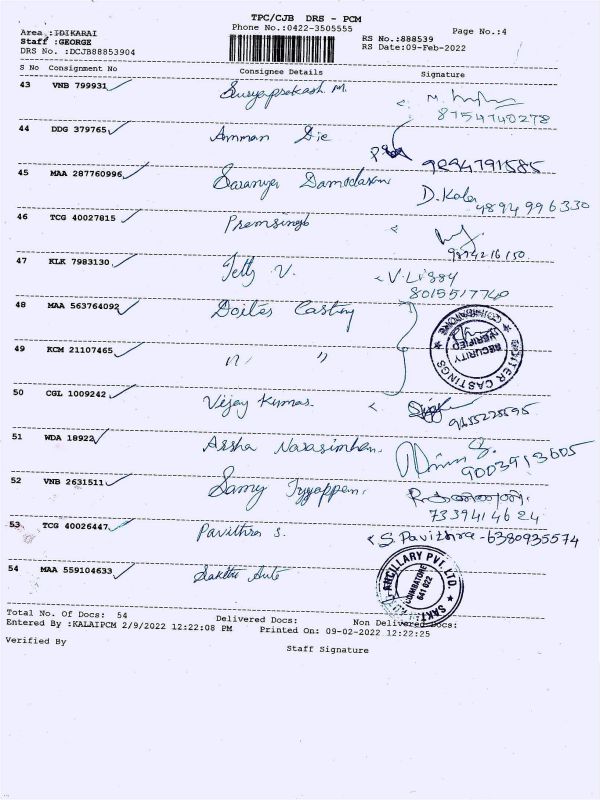 TPC/CJB DRS - PCM
Phone No.:0422-3505555
Area :IDIKARAI
Staff :GEORGE
DRS No. :DCJB88853904
RS No.:888539
RS Date:09-Feb-2022
Page No.:4
S No Consignment No Consignee Details Signature
43 VNB 799931 Suryaprakash M.
8754740278
44 DDG 379765 Amman Die
9894791585
45 MAA 287760996 Saranya Damodaran D. Kala
4894996330
46 TCG 40027815 Premsingh
47 KLK 7983130 Jetty V. V. Lissy
8015517740
48 MAA 563764092 Doiter Casting
49 KCM 21107465 〃 〃
DOITER CASTINGS
COIMBATORE
SECURITY
VERIFIED
50 CGL 1009242 Vijay Kumar
9455225595
51 WDA 18922 Assha Narasimhan
9003913605
52 VNB 2631511 Samy Iyyappan
7339414624
53 TCG 40026447 Pavithra S. S. Pavithra - 6380935574
54 MAA 559104633 Sakthi Auto
SAKTHI ANCILLARY PVT. LTD.
COIMBATORE
641 022
Total No. Of Docs: 54 Delivered Docs: Non Delivered Docs:
Entered By :KALAIPCM 2/9/2022 12:22:08 PM Printed On: 09-02-2022 12:22:25
Verified By Staff Signature